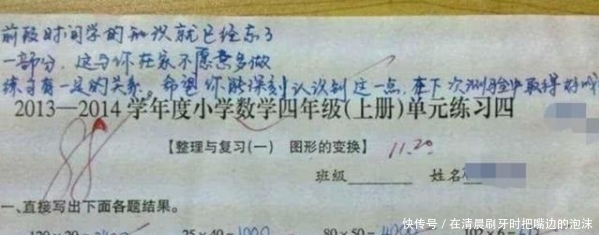 前段时间学的知识就已经忘了
一部分，这与你在家不愿意多做
练习有一定的关系。希望你能深刻认识到这一点，在下次测验中取得好成
2013—2014学年度小学数学四年级(上册)单元练习四
88
【整理与复习(一) 图形的变换】 11.20
班级 姓名
一、直接写出下面各题结果。
120×20= 25×40=1000 80×50=4000
快传号/在清晨刷牙时把嘴边的泡沫